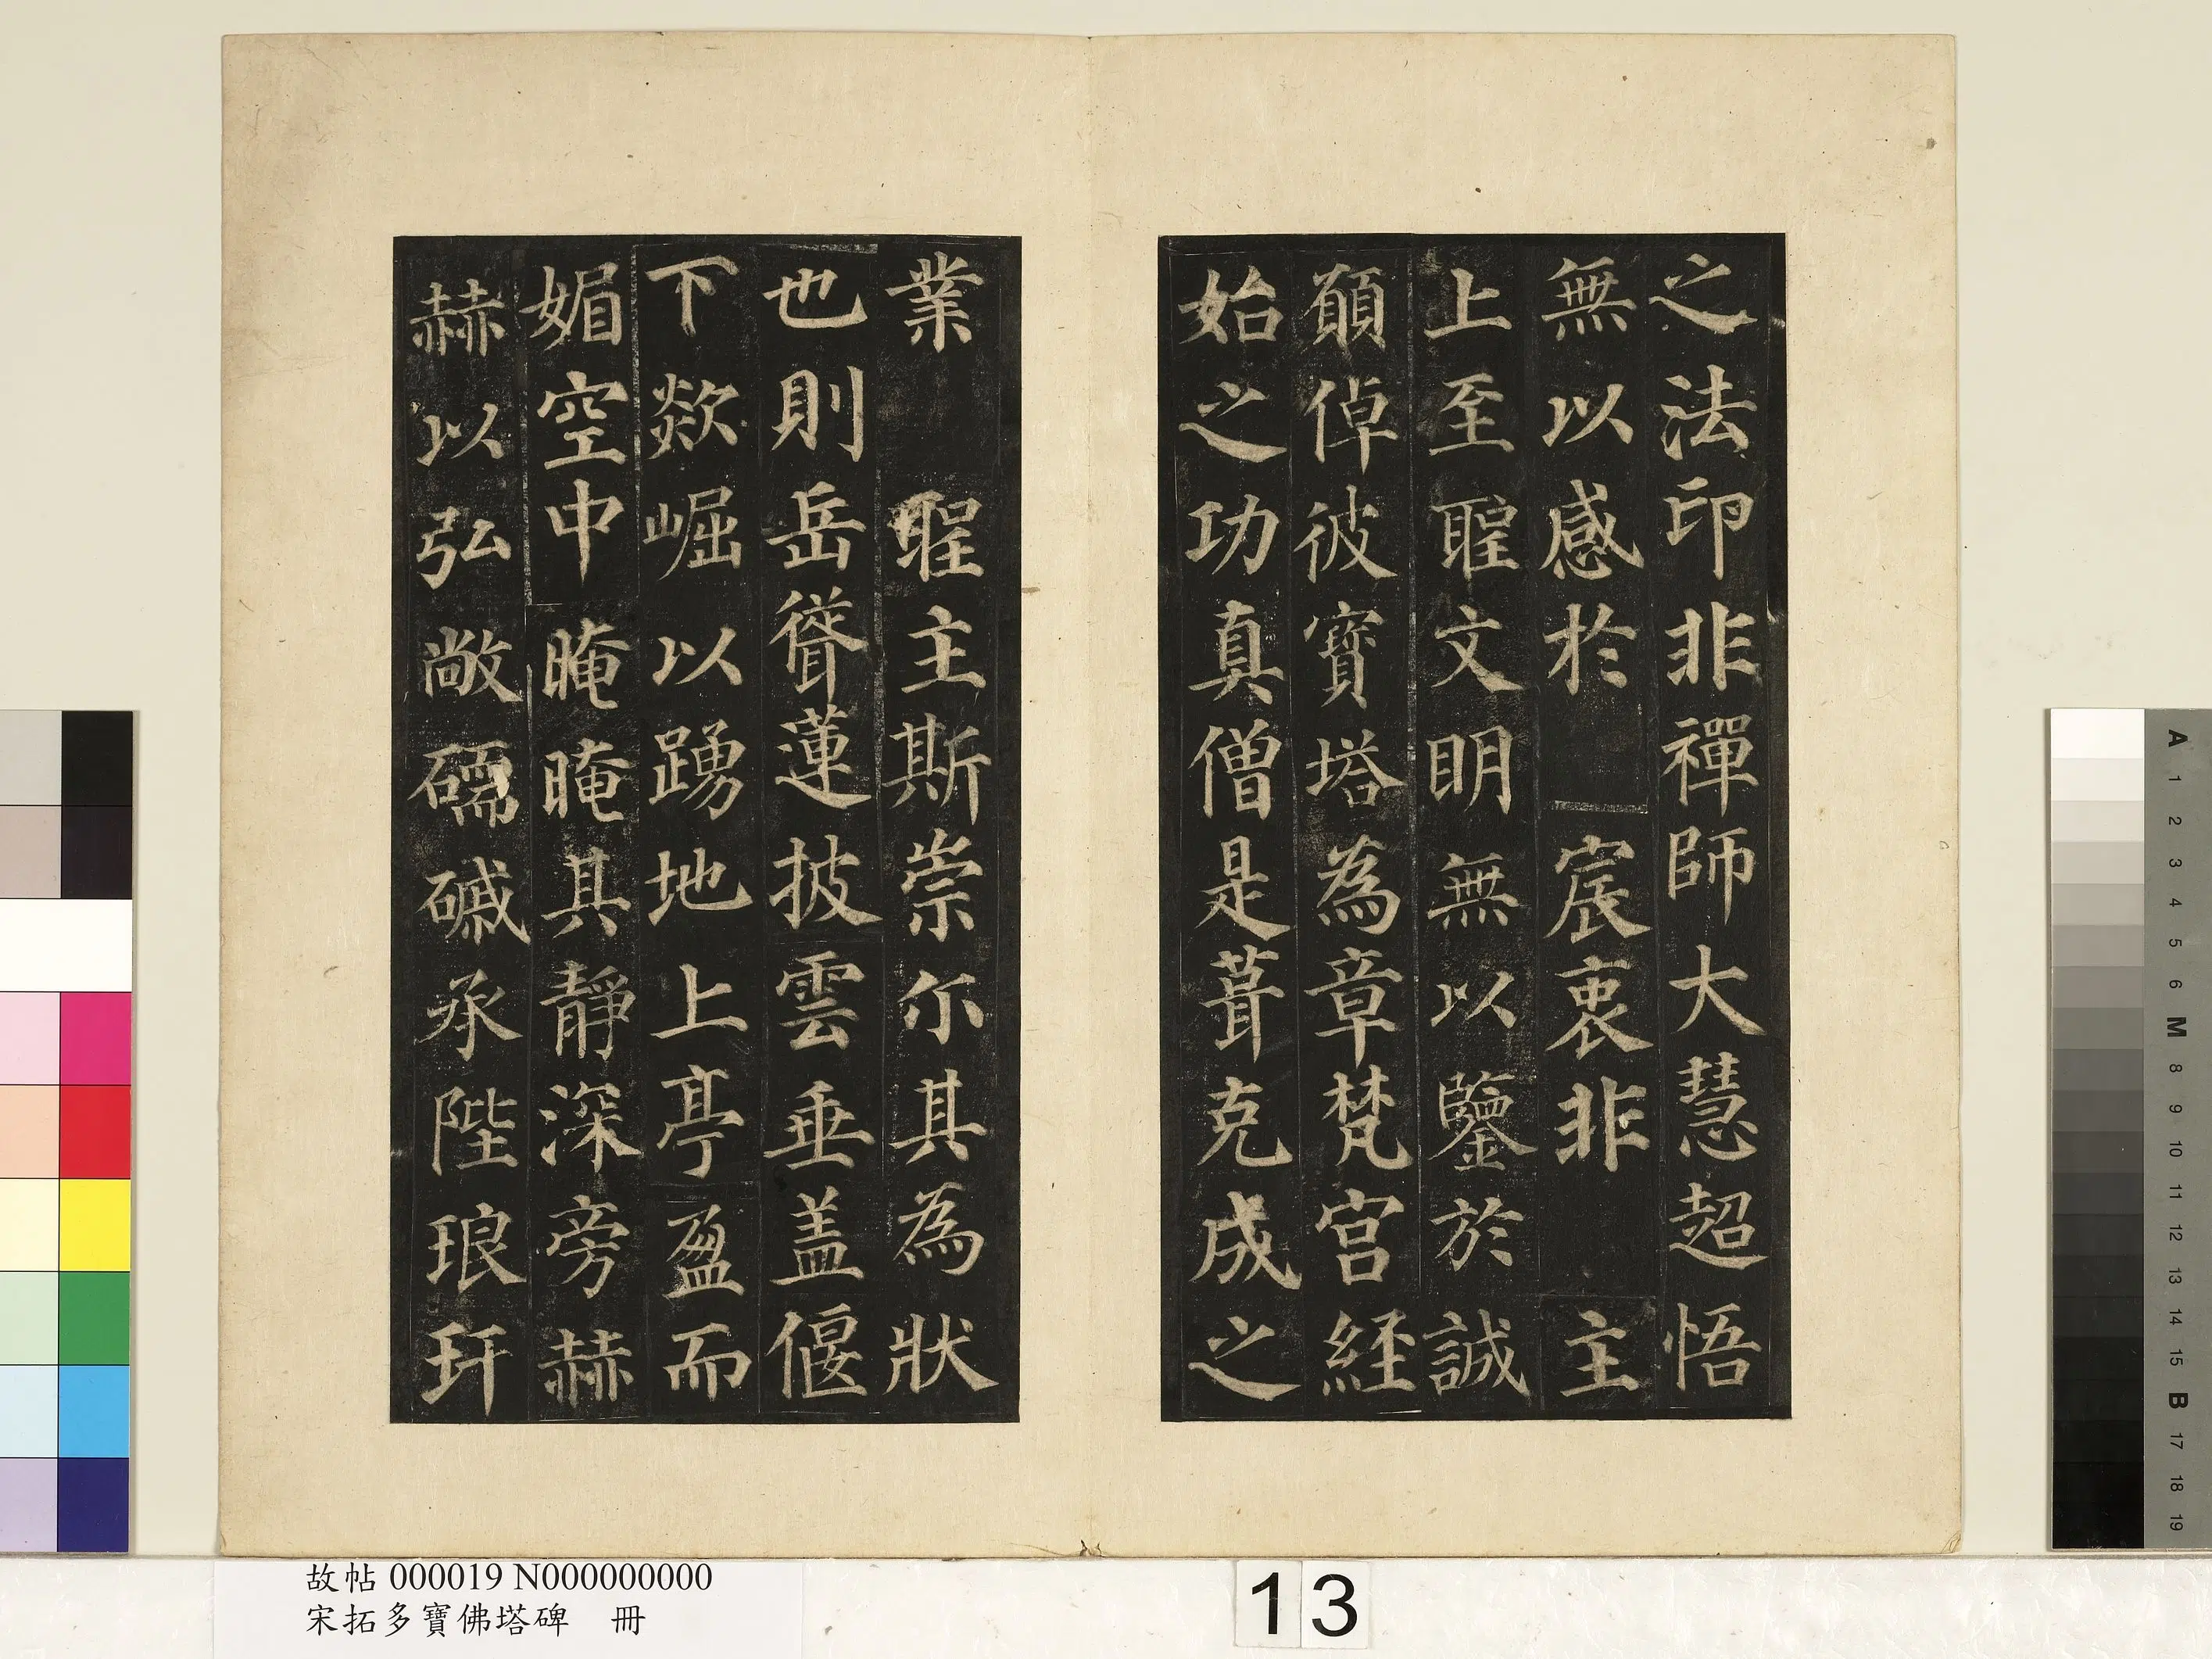 之法印非禪師大慧超悟
無以感於　宸衷非　主
上至聖文明無以鑒於誠
願倬彼寶塔為章梵宮經
始之功真僧是葺克成之
業　聖主斯崇尒其為狀
也則岳聳蓮披雲垂盖偃
下欻崛以踴地上亭盈而
媚空中晻晻其靜深旁赫
赫以弘敞礝磩承陛琅玕
故帖 000019 N000000000
宋拓多寶佛塔碑　冊
13
A
1
2
3
4
5
6
M
8
9
10
11
12
13
14
15
B
17
18
19